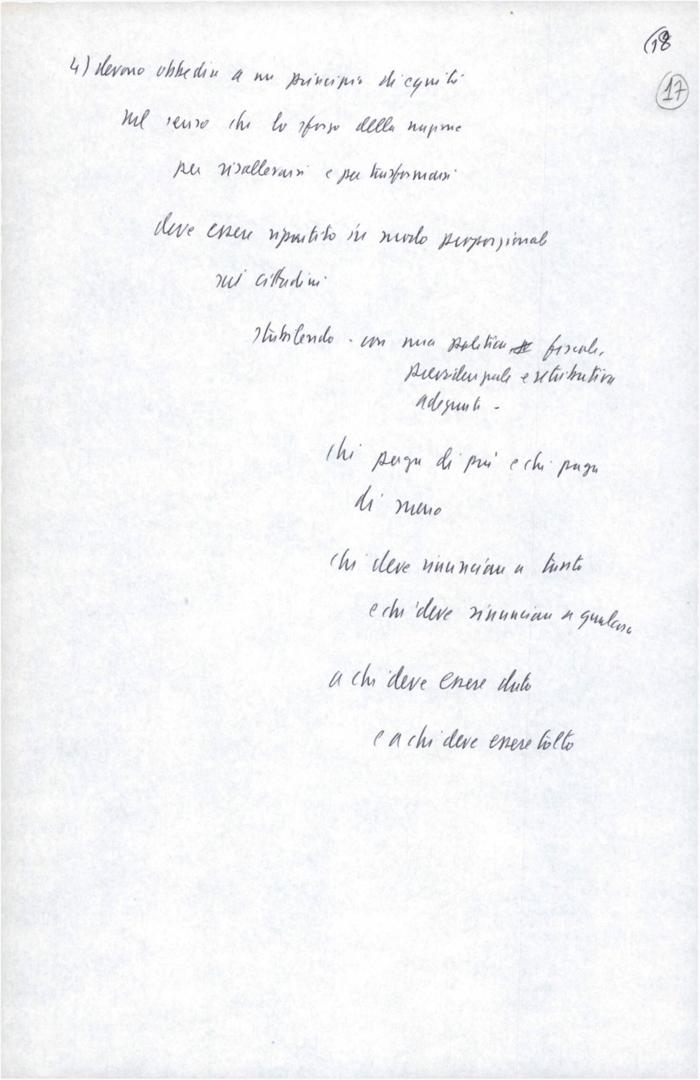 18
17
4) devono obbedire a un principio di equità
nel senso che lo sforzo della nazione
per risollevarsi e per trasformarsi
deve essere ripartito in modo proporzionale
sui cittadini
stabilendo - con una politica fiscale,
previdenziale e retributiva
adeguata -
chi paga di più e chi paga
di meno
chi deve rinunciare a tanto
e chi deve rinunciare a qualcosa
a chi deve essere dato
e a chi deve essere tolto